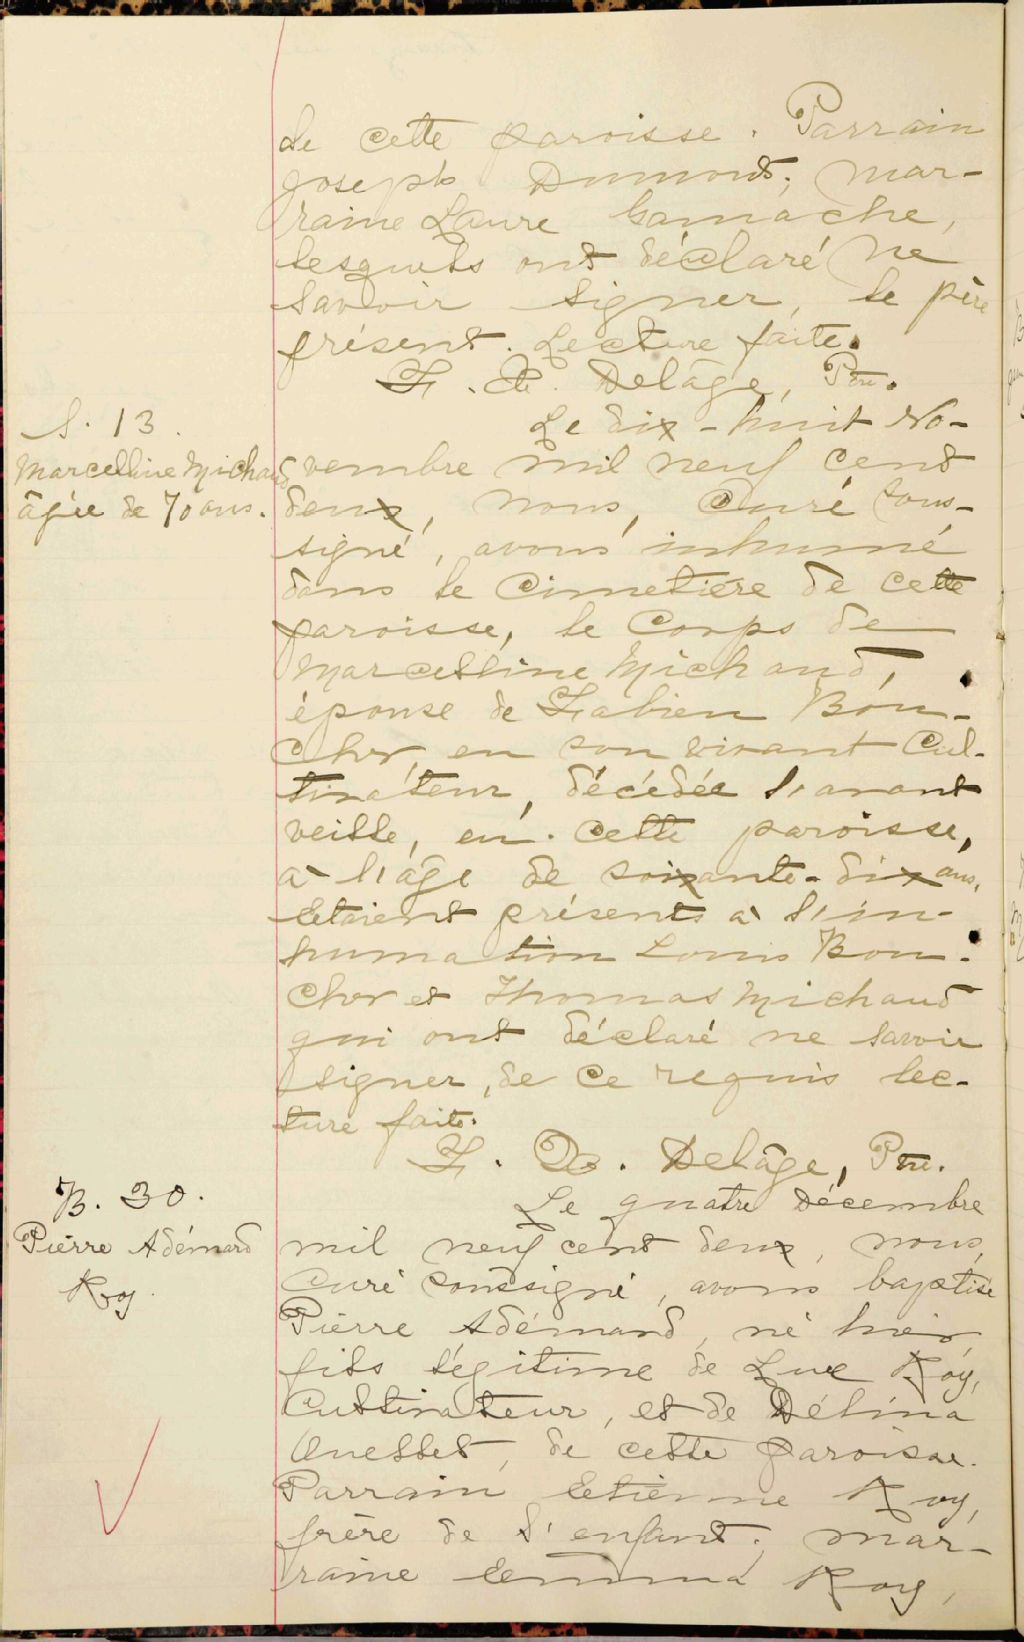 de cette paroisse. Parrain
Joseph Dumont; mar-
raine Laure Gamache,
lesquels ont déclaré ne
savoir signer, le père
présent. Lecture faite.
F. X. Delâge, Ptre.
S. 13.
Marcelline Michaud
âgée de 70 ans.
Le dix-huit No-
vembre mil neuf cent
deux, nous, Curé sous-
signé, avons inhumé
dans le Cimetière de cette
paroisse, le Corps de
Marcelline Michaud,
épouse de Fabien Bou-
cher, en son vivant Cul-
tivateur, décédée l'avant
veille, en cette paroisse,
à l'âge de soixante-dix ans.
Etaient présents à l'in-
humation Louis Bou-
cher et Thomas Michaud
qui ont déclaré ne savoir
signer, de ce requis lec-
ture faite.
F. X. Delâge, Ptre.
B. 30.
Pierre Adémard
Roy
Le quatre Décembre
mil neuf cent deux, nous,
Curé soussigné, avons baptisé
Pierre Adémard, né hier,
fils légitime de Luc Roy,
Cultivateur, et de Délina
Ouellet, de cette paroisse.
Parrain Etienne Roy,
frère de l'enfant; mar-
raine Emma Roy,